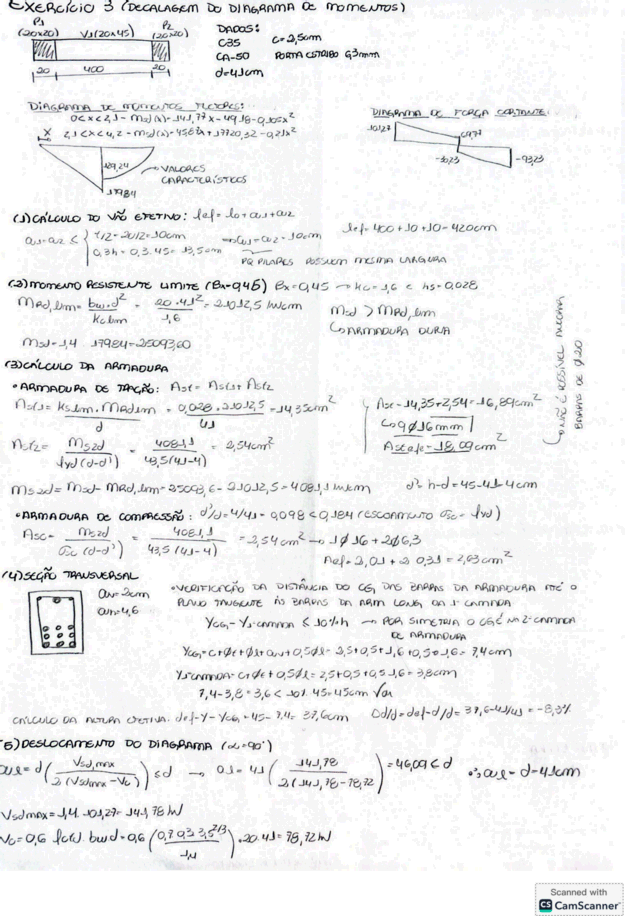 EXERCÍCIO 3 (DECALAGEM DO DIAGRAMA DE MOMENTOS)
P1 P2
(20x20) V1(20x45) (20x20)
20 400 20
DADOS:
C35 c=2,5cm
CA-50 PORTA ESTRIBO 6,3mm
d=41cm
DIAGRAMA DE MOMENTOS FLETORES:
0<x<2,1 - Msd(x)=141,77x-49,18-0,105x²
x 2,1<x<4,2 - Msd(x)=
129,24
VALORES CARACTERÍSTICOS
17984
DIAGRAMA DE FORÇA CORTANTE:
101,27
69,77
-30,23
-93,23
(1) CÁLCULO DO VÃO EFETIVO: lef = lo + a1 + a2
a1=a2 ≤ { t/2=20/2=10cm
0,3h=0,3.45=13,5cm
a1=a2=10cm
PQ PILARES POSSUEM MESMA LARGURA
lef=400+10+10=420cm
(2) MOMENTO RESISTENTE LIMITE (Bx=0,45) Bx=0,45 → kc=1,6 e ks=0,028
MRd,lim = bw.d²/kclim = 20.41²/1,6 = 21012,5 kNcm
Msd > MRd,lim
↳ ARMADURA DUPLA
Msd=1,4 . 17984=25093,60
(3) CÁLCULO DA ARMADURA
• ARMADURA DE TRAÇÃO: Ast = Ast1 + Ast2
Ast1 = kslim.MRdlim/d = 0,028.21012,5/41 = 14,35cm²
Ast = 14,35+2,54=16,89cm²
↳ 9Ø16mm
Astefe=18,09cm²
↳ NÃO É POSSÍVEL BARRAS DE Ø20
Ast2 = Ms2d/fyd(d-d') = 4081,1/43,5(41-4) = 2,54cm²
Ms2d = Msd - MRd,lim = 25093,6 - 21012,5 = 4081,1 kNcm d'= h-d=45-41=4cm
• ARMADURA DE COMPRESSÃO: d'/d=4/41=0,098<0,184 (ESCOAMENTO σsc = fyd)
Asc = Ms2d/σsc(d-d') = 4081,1/43,5(41-4) = 2,54cm² → 1Ø16 + 2Ø6,3
Aef=2,01+2.0,31=2,63cm²
(4) SEÇÃO TRANSVERSAL
av=2cm
ah=4,6
• VERIFICAÇÃO DA DISTÂNCIA DO CG DAS BARRAS DA ARMADURA ATÉ O
PLANO TANGENTE ÀS BARRAS DA ARM LONG DA 1ª CAMADA
YCG - Y1ªCAMADA ≤ 10%h → POR SIMETRIA O CG É NA 2ª CAMADA
DE ARMADURA
YCG = c+Øt+Øl+av+0,5Øl = 2,5+0,5+1,6+0,5.1,6 = 7,4cm
Y1ªCAMADA = c+Øt+0,5Øl = 2,5+0,5+0,5.1,6 = 3,8cm
7,4-3,8=3,6 < 10% 45=45cm
CÁLCULO DA ALTURA EFETIVA: def=Y-YCG=45-7,4=37,6cm Dd/d=def-d/d=37,6-41/41=-8,3%
(5) DESLOCAMENTO DO DIAGRAMA (α=90°)
al = d(Vsd,max/2(Vsdmax-Vc)) ≤ d → al=41(141,78/2(141,78-78,72)) = 46,09<d ∴ al=d=41cm
Vsdmax=1,4.101,27=141,78 kN
Vc=0,6 fctd.bw.d=0,6(0,7.0,3.3,5^2/3/1,4).20.41=78,72kN
Scanned with
CS CamScanner